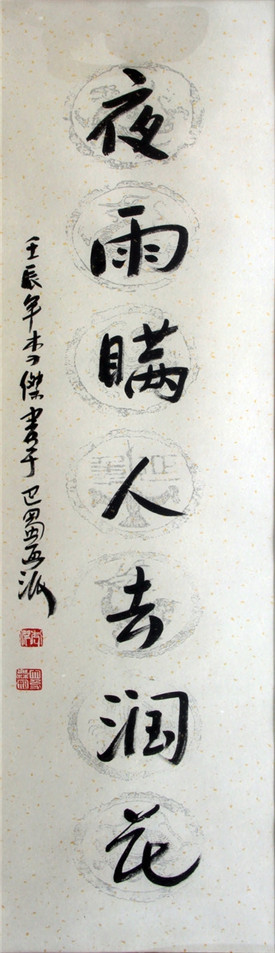 夜雨瞒人去润花
壬辰年李傑書于巴蜀画派